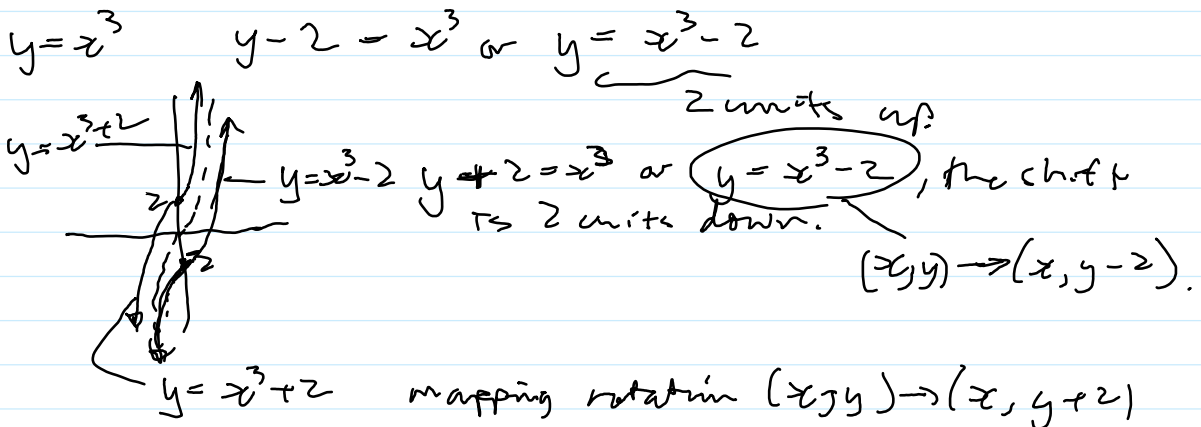 y = x³ y - 2 = x³ or y = x³ - 2
2 units up.
y = x³+2
y = x³ - 2 y + 2 = x³ or y = x³ - 2, the shift
2 is 2 units down.
-2 (x, y) → (x, y - 2).
y = x³ + 2 mapping notation (x, y) → (x, y + 2)